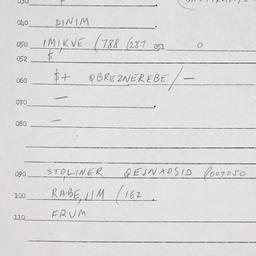 040 DINIM
050 IMIKVE (788 (287 052 0
052 $
060 $+ QBREZNEREBE/-
070 -
080 -
090 STOLINER QEJNXDSID
100 RABE, JIM (162
110 FRUM